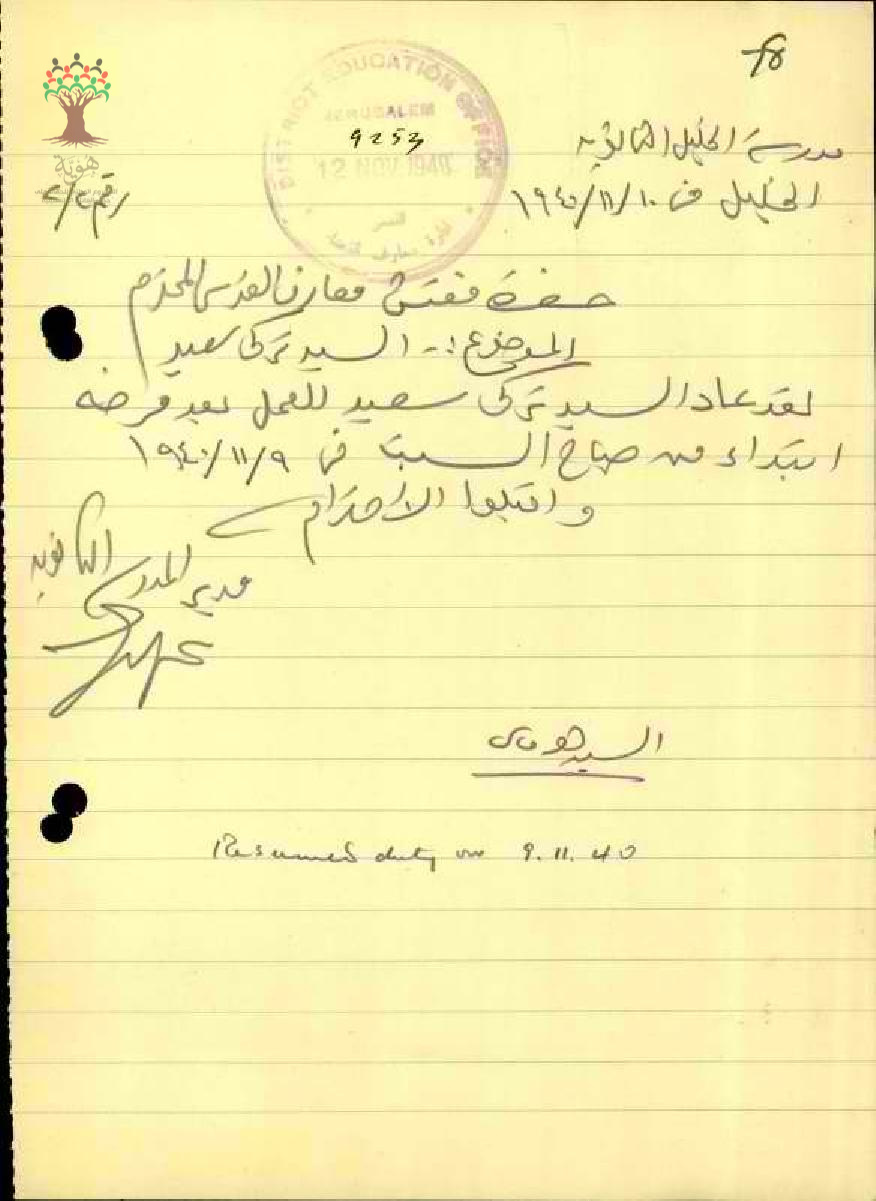 78
DISTRICT EDUCATION OFFICE
JERUSALEM
9253
12 NOV 1940
القدس
هوية
مدرسة الخليل الثانوية
الخليل في ١٩٤٠/١١/١٠
رقم
حضرة مفتش معارف القدس المحترم
الموضوع :- السيد تركي سعيد
لقد عاد السيد تركي سعيد للعمل بعد مرضه
ابتداء من صباح السبت في ١٩٤٠/١١/٩
واقبلوا الاحترام
مدير المدرسة الثانوية
السيد
Resumed duty on 9.11.40